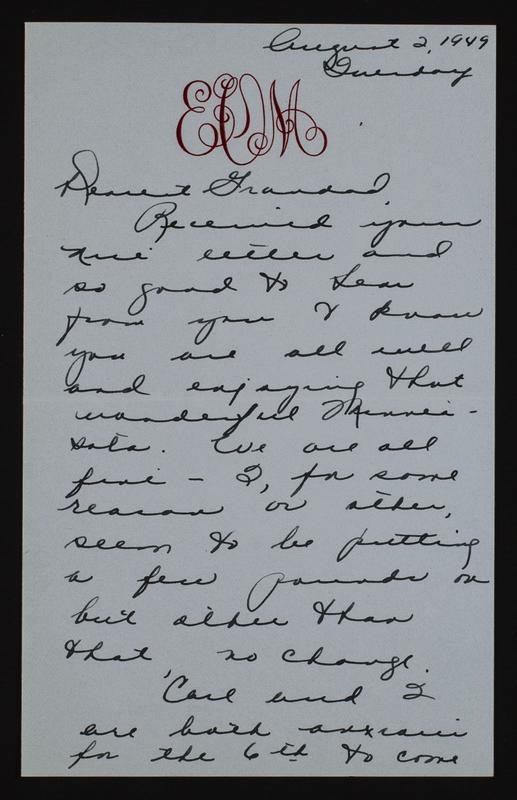 August 2, 1949
Tuesday
EPM
Dearest Grandad,
Received your
nice letter and
so good to hear
from you & know
you are all well
and enjoying that
wonderful Minne-
sota. We are all
fine - I, for some
reason or other,
seem to be putting
a few pounds on
but other than
that, no change.
Carl and I
are both anxious
for the 6th to come